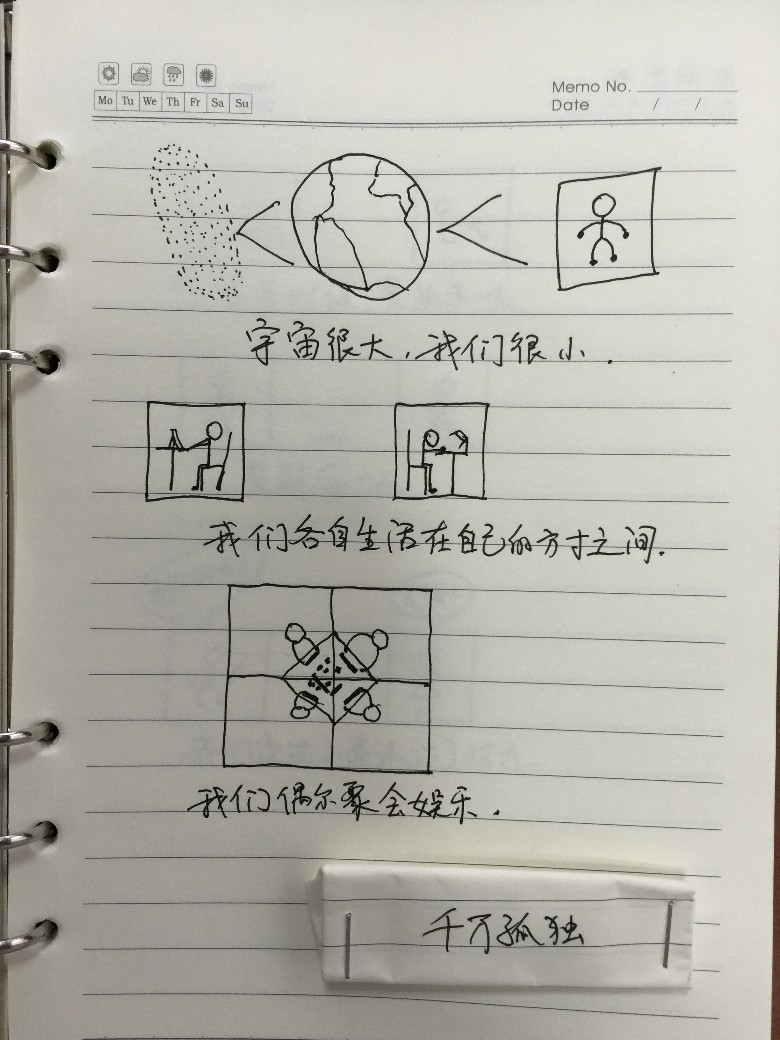 Mo Tu We Th Fr Sa Su
Memo No.
Date / /
宇宙很大，我们很小．
我们各自生活在自己的方寸之间．
我们偶尔聚会娱乐．
千万孤独